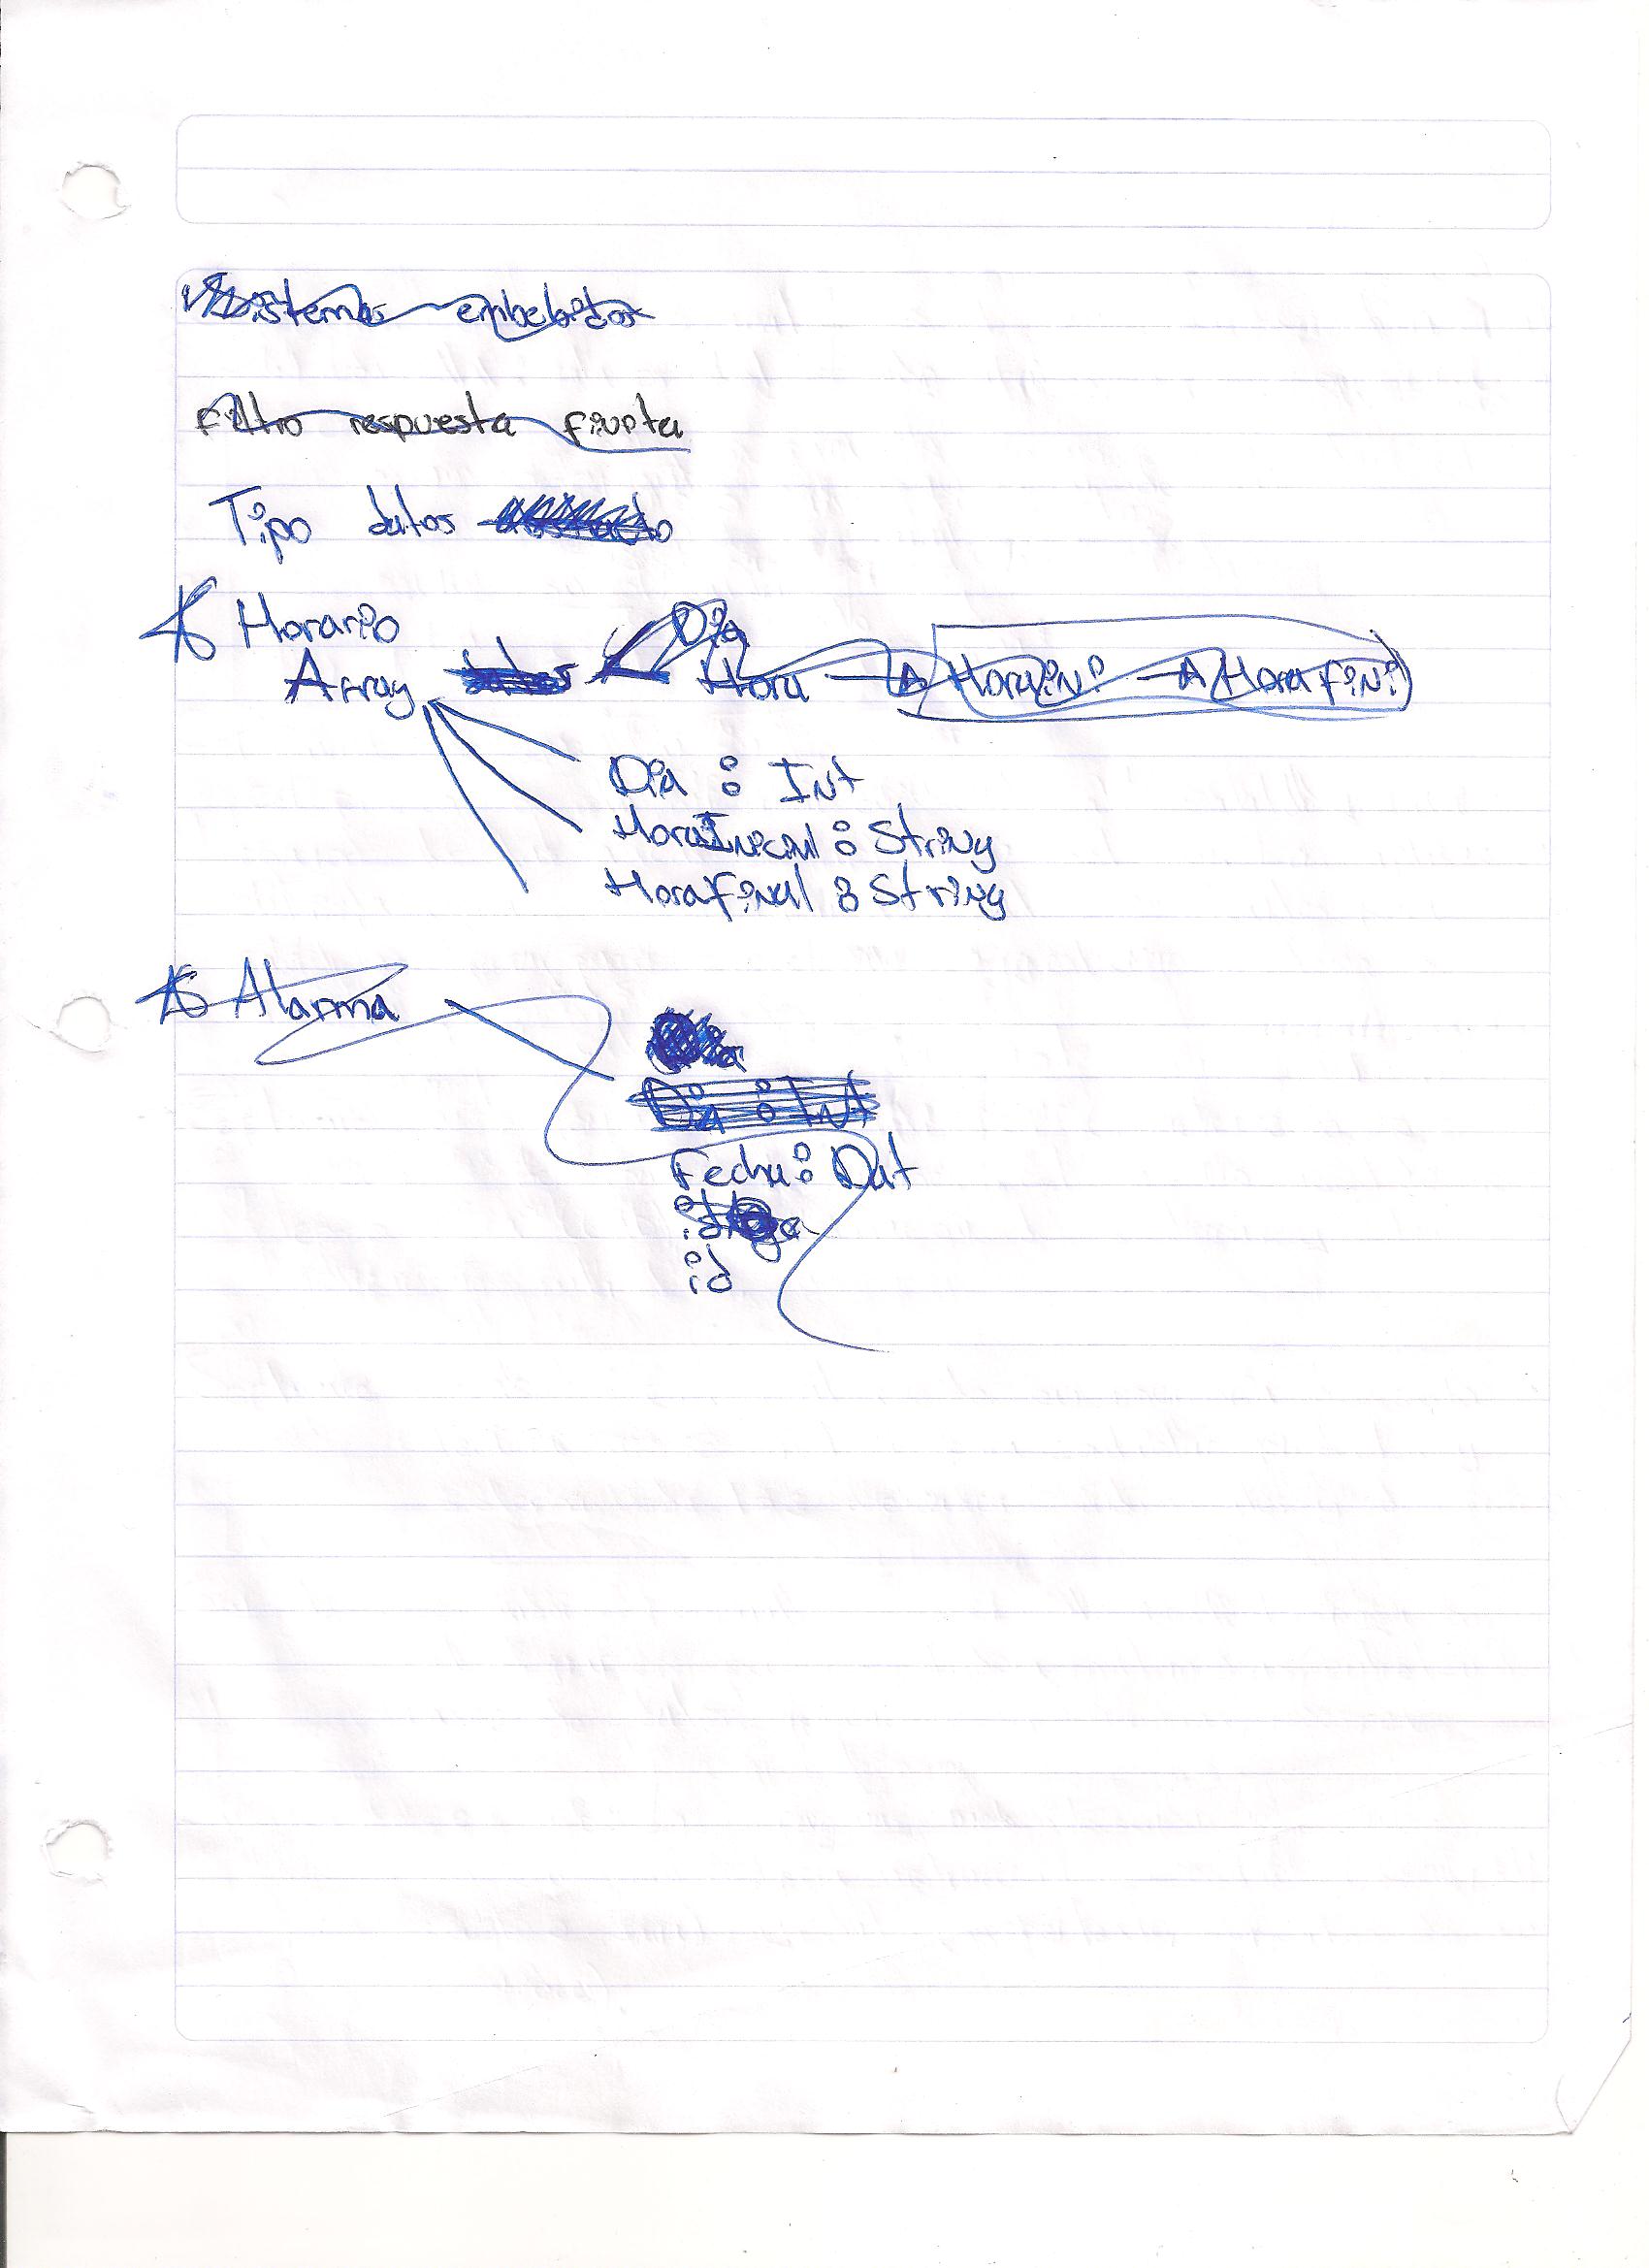 Sistemas embebidos
Filtro respuesta finita
Tipo datos abstracto
Horario
Dia
Array datos Hora Hora ini Hora Fini
Dia : Int
HoraInicial : String
HoraFinal : String
Alarma
Dia : Int
Fecha : Dat
id